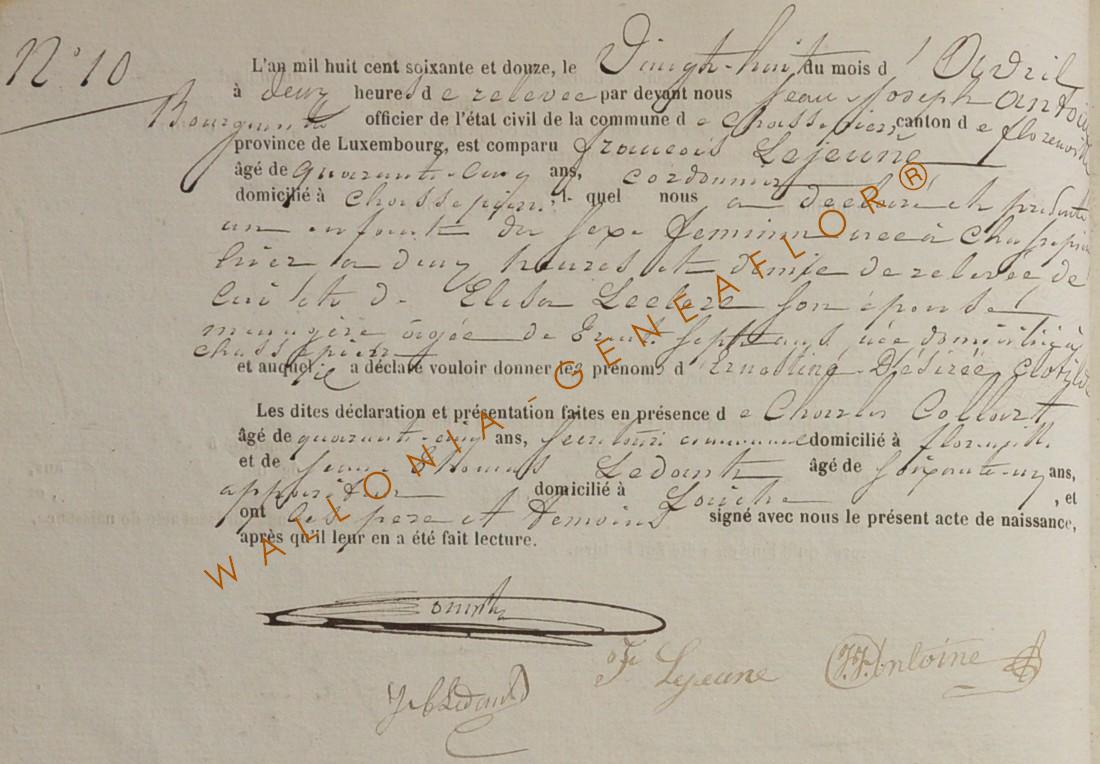 N° 10
L'an mil huit cent soixante et douze, le Vingt-huit du mois d'Avril
à deux heures de relevée par devant nous Jean Joseph Antoine
Bourgmestre officier de l'état civil de la commune de Chassepierre canton de Florenville
province de Luxembourg, est comparu François Lejeune
âgé de quarante-cinq ans, cordonnier
domicilié à Chassepierre, l quel nous a déclaré et présenté
un enfant du sexe féminin née à Chassepierre
hier à deux heures et demie de relevée de
lui et de Elisa Leclere son épouse
menagère âgée de trente sept ans, née domiciliée à
Chassepierre
et auquel il a déclaré vouloir donner les prénoms d'Ernestine Désirée Clotilde
Les dites déclaration et présentation faites en présence de Charles Collart
âgé de quarante-cinq ans, secrétaire communal domicilié à Florenville
et de Jean Thomas Ledant âgé de soixante-un ans,
appariteur domicilié à , et
ont les père et témoins signé avec nous le présent acte de naissance,
après qu'il leur en a été fait lecture.
F Lejeune J.J. Antoine
WALLONIA - GENEAFLOR ®